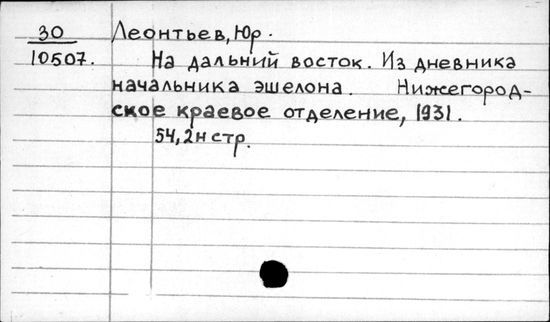 30 Леонтьев, Юр.
10507. На дальний восток. Из дневника
начальника эшелона. Нижегород-
ское краевое отделение, 1931.
54, 2н стр.